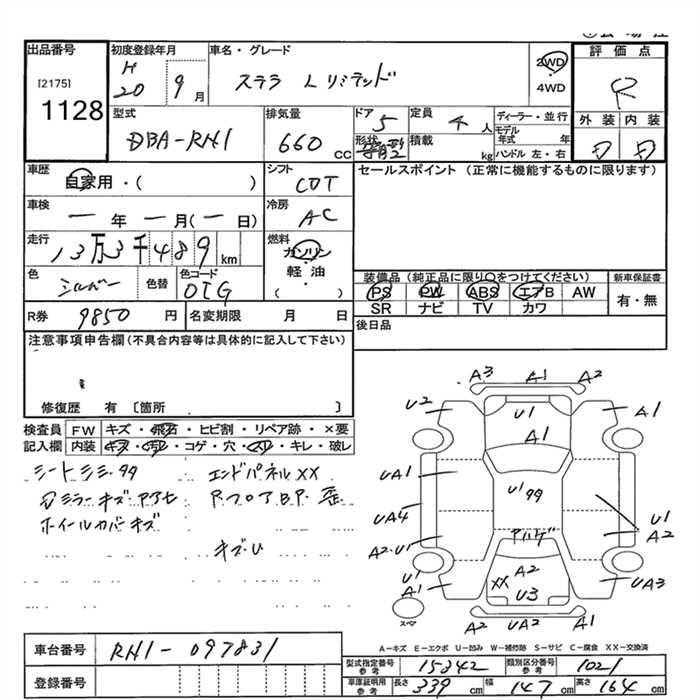 出品番号
[2175]
1128
初度登録年月
H
20 9月
車名・グレード
ステラ Lリミテッド
2WD
4WD
評価点
R
外装 内装
D D
型式
DBA-RN1
排気量
660 cc
ドア
5
形状
箱型
定員
4人
積載
kg
ディーラー・並行
モデル
年式 年
ハンドル 左・右
車歴
自家用・( )
シフト
CDT
セールスポイント(正常に機能するものに限ります)
車検
ー年ー月(ー日)
冷房
AC
走行
13万3千489km
燃料
ガソリン
軽・油
( )
色
シルバー
色替
色コード
D1G
装備品(純正品に限り○をつけてください)
PS PW ABS エアB AW
SR ナビ TV カワ
新車保証書
有・無
R券 9850円
名変期限 月 日
後日品
注意事項申告欄(不具合内容等は具体的に記入して下さい)
修復歴 有[箇所 ]
検査員
記入欄
FW キズ・飛石・ヒビ割・リペア跡・×要
内装 キズ・汚レ・コゲ・穴・スリ・キレ・破レ
エンドパネルXX
ホイールカバーキズ
キズ・U
A3 A1 A2
U2 U1 A1
A1
UA1
U1 99
UA4
U1
A2
アルゲ
A2・U1
A2
XX
U3
U1
A1
UA3
スペア
A2 UA2 A1
A-キズ E-エクボ U-凹み W-補修跡 S-サビ C-腐食 XX-交換済
車台番号 RN1-097831
登録番号
型式指定番号
参考
15342
類別区分番号
参考
1021
車庫証明用
参考
長さ 339cm 幅 147cm 高さ 164cm